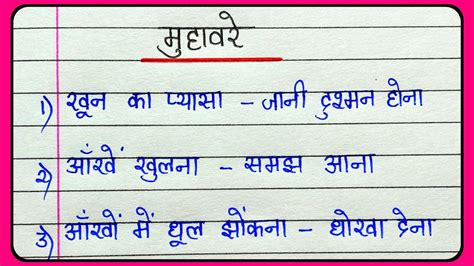 मुहावरे
1) खून का प्यासा – जानी दुश्मन होना
2) आँखें खुलना – समझ आना
3) आँखों में धूल झोंकना – धोखा देना